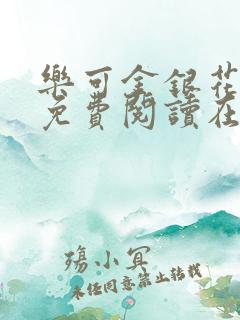 樂可金銀花
免費閱讀在
殤小冥
未经同意禁止转载